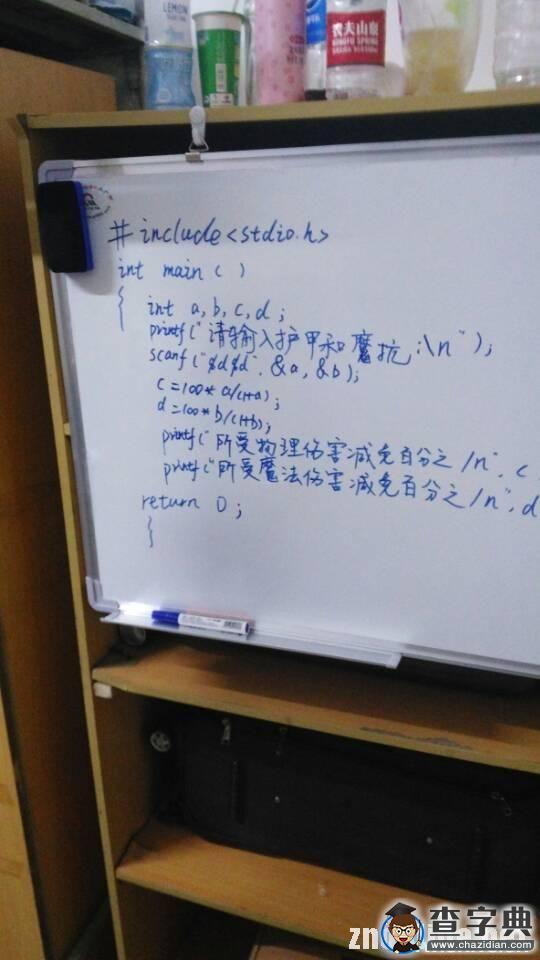 LEMON
农夫山泉
NONGFU SPRING
#include<stdio.h>
int main ( )
{ int a,b,c,d;
printf("请输入护甲和魔抗:\n");
scanf("%d%d",&a,&b);
c=100*a/(1+a);
d=100*b/(1+b);
printf("所受物理伤害减免百分之/n",c
printf("所受魔法伤害减免百分之/n",d
return 0;
}
查字典
www.chazidian.com